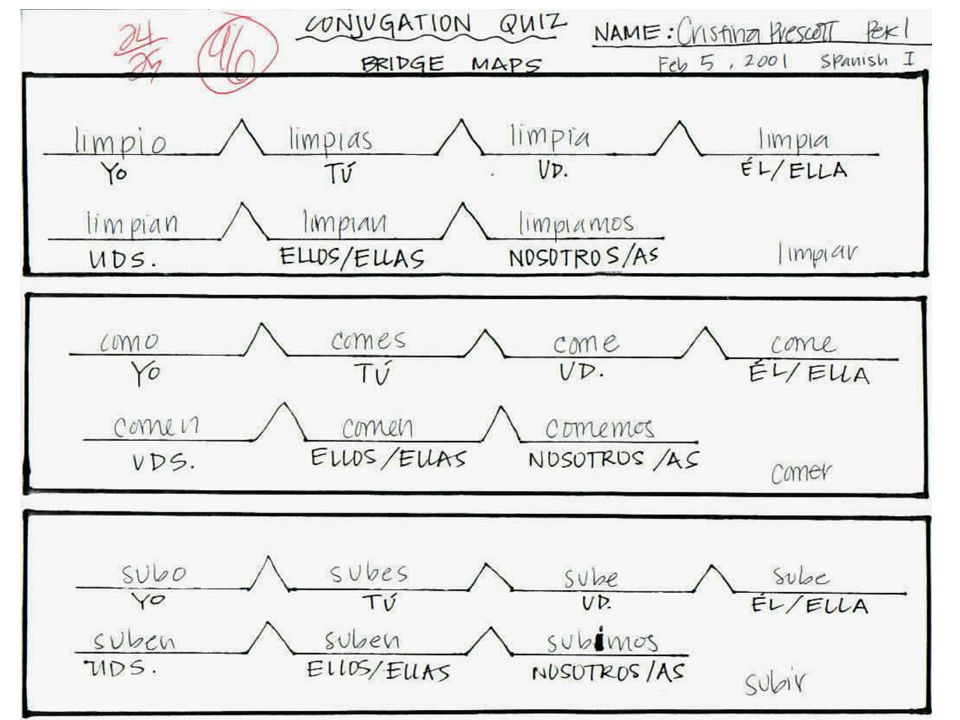 24/25 96 CONJUGATION QUIZ NAME: Cristina Prescott Per 1
BRIDGE MAPS Feb 5, 2001 Spanish I
limpio limpias limpia limpia
YO TÚ UD. ÉL/ELLA
limpian limpian limpiamos
UDS. ELLOS/ELLAS NOSOTROS/AS limpiar
como comes come come
YO TÚ UD. ÉL/ELLA
comen comen comemos
UDS. ELLOS/ELLAS NOSOTROS/AS comer
subo subes sube sube
YO TÚ UD. ÉL/ELLA
suben suben subimos
UDS. ELLOS/ELLAS NOSOTROS/AS subir